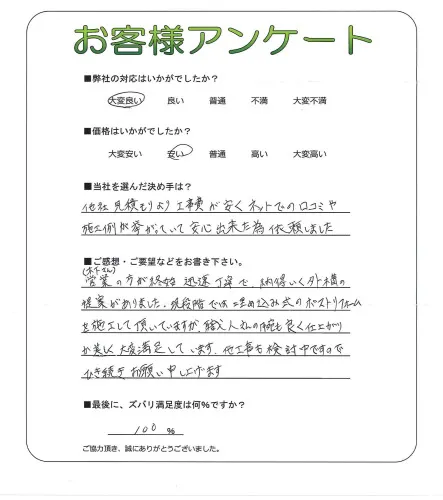 お客様アンケート
■弊社の対応はいかがでしたか？
大変良い 良い 普通 不満 大変不満
■価格はいかがでしたか？
大変安い 安い 普通 高い 大変高い
■当社を選んだ決め手は？
他社見積もりより工事費が安くネットでの口コミや
施工例が挙がっていて安心出来た為依頼しました
■ご感想・ご要望などをお書き下さい。
営業の方が終始迅速丁寧で、納得いく外構の
提案がありました。現段階では埋め込み式のポストリフォーム
を施工して頂いていますが、職人さんの腕も良く仕上がり
が美しく大変満足しています。他工事も検討中ですので
ひき続きお願い申し上げます
■最後に、ズバリ満足度は何%ですか？
100 %
ご協力頂き、誠にありがとうございました。